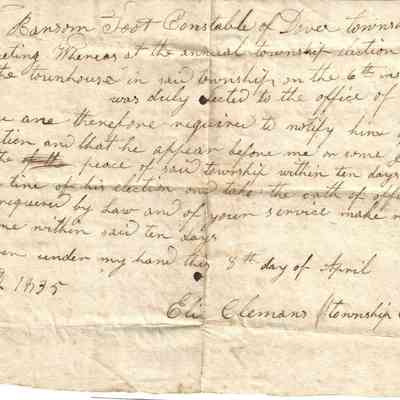 Ransom Foot Constable of Dover towns
eeting Whereas at the annual township election
the townhouse in said township, on the 6th ins
was duly elected to the office of
are therefore required to notify him of
tion and that he appear before me or some
peace of said township within ten days
time of his election and take the oath of offi
required by Law and of your service make
me within said ten days
en under my hand this 8th day of April
1835
Eli Clemans township